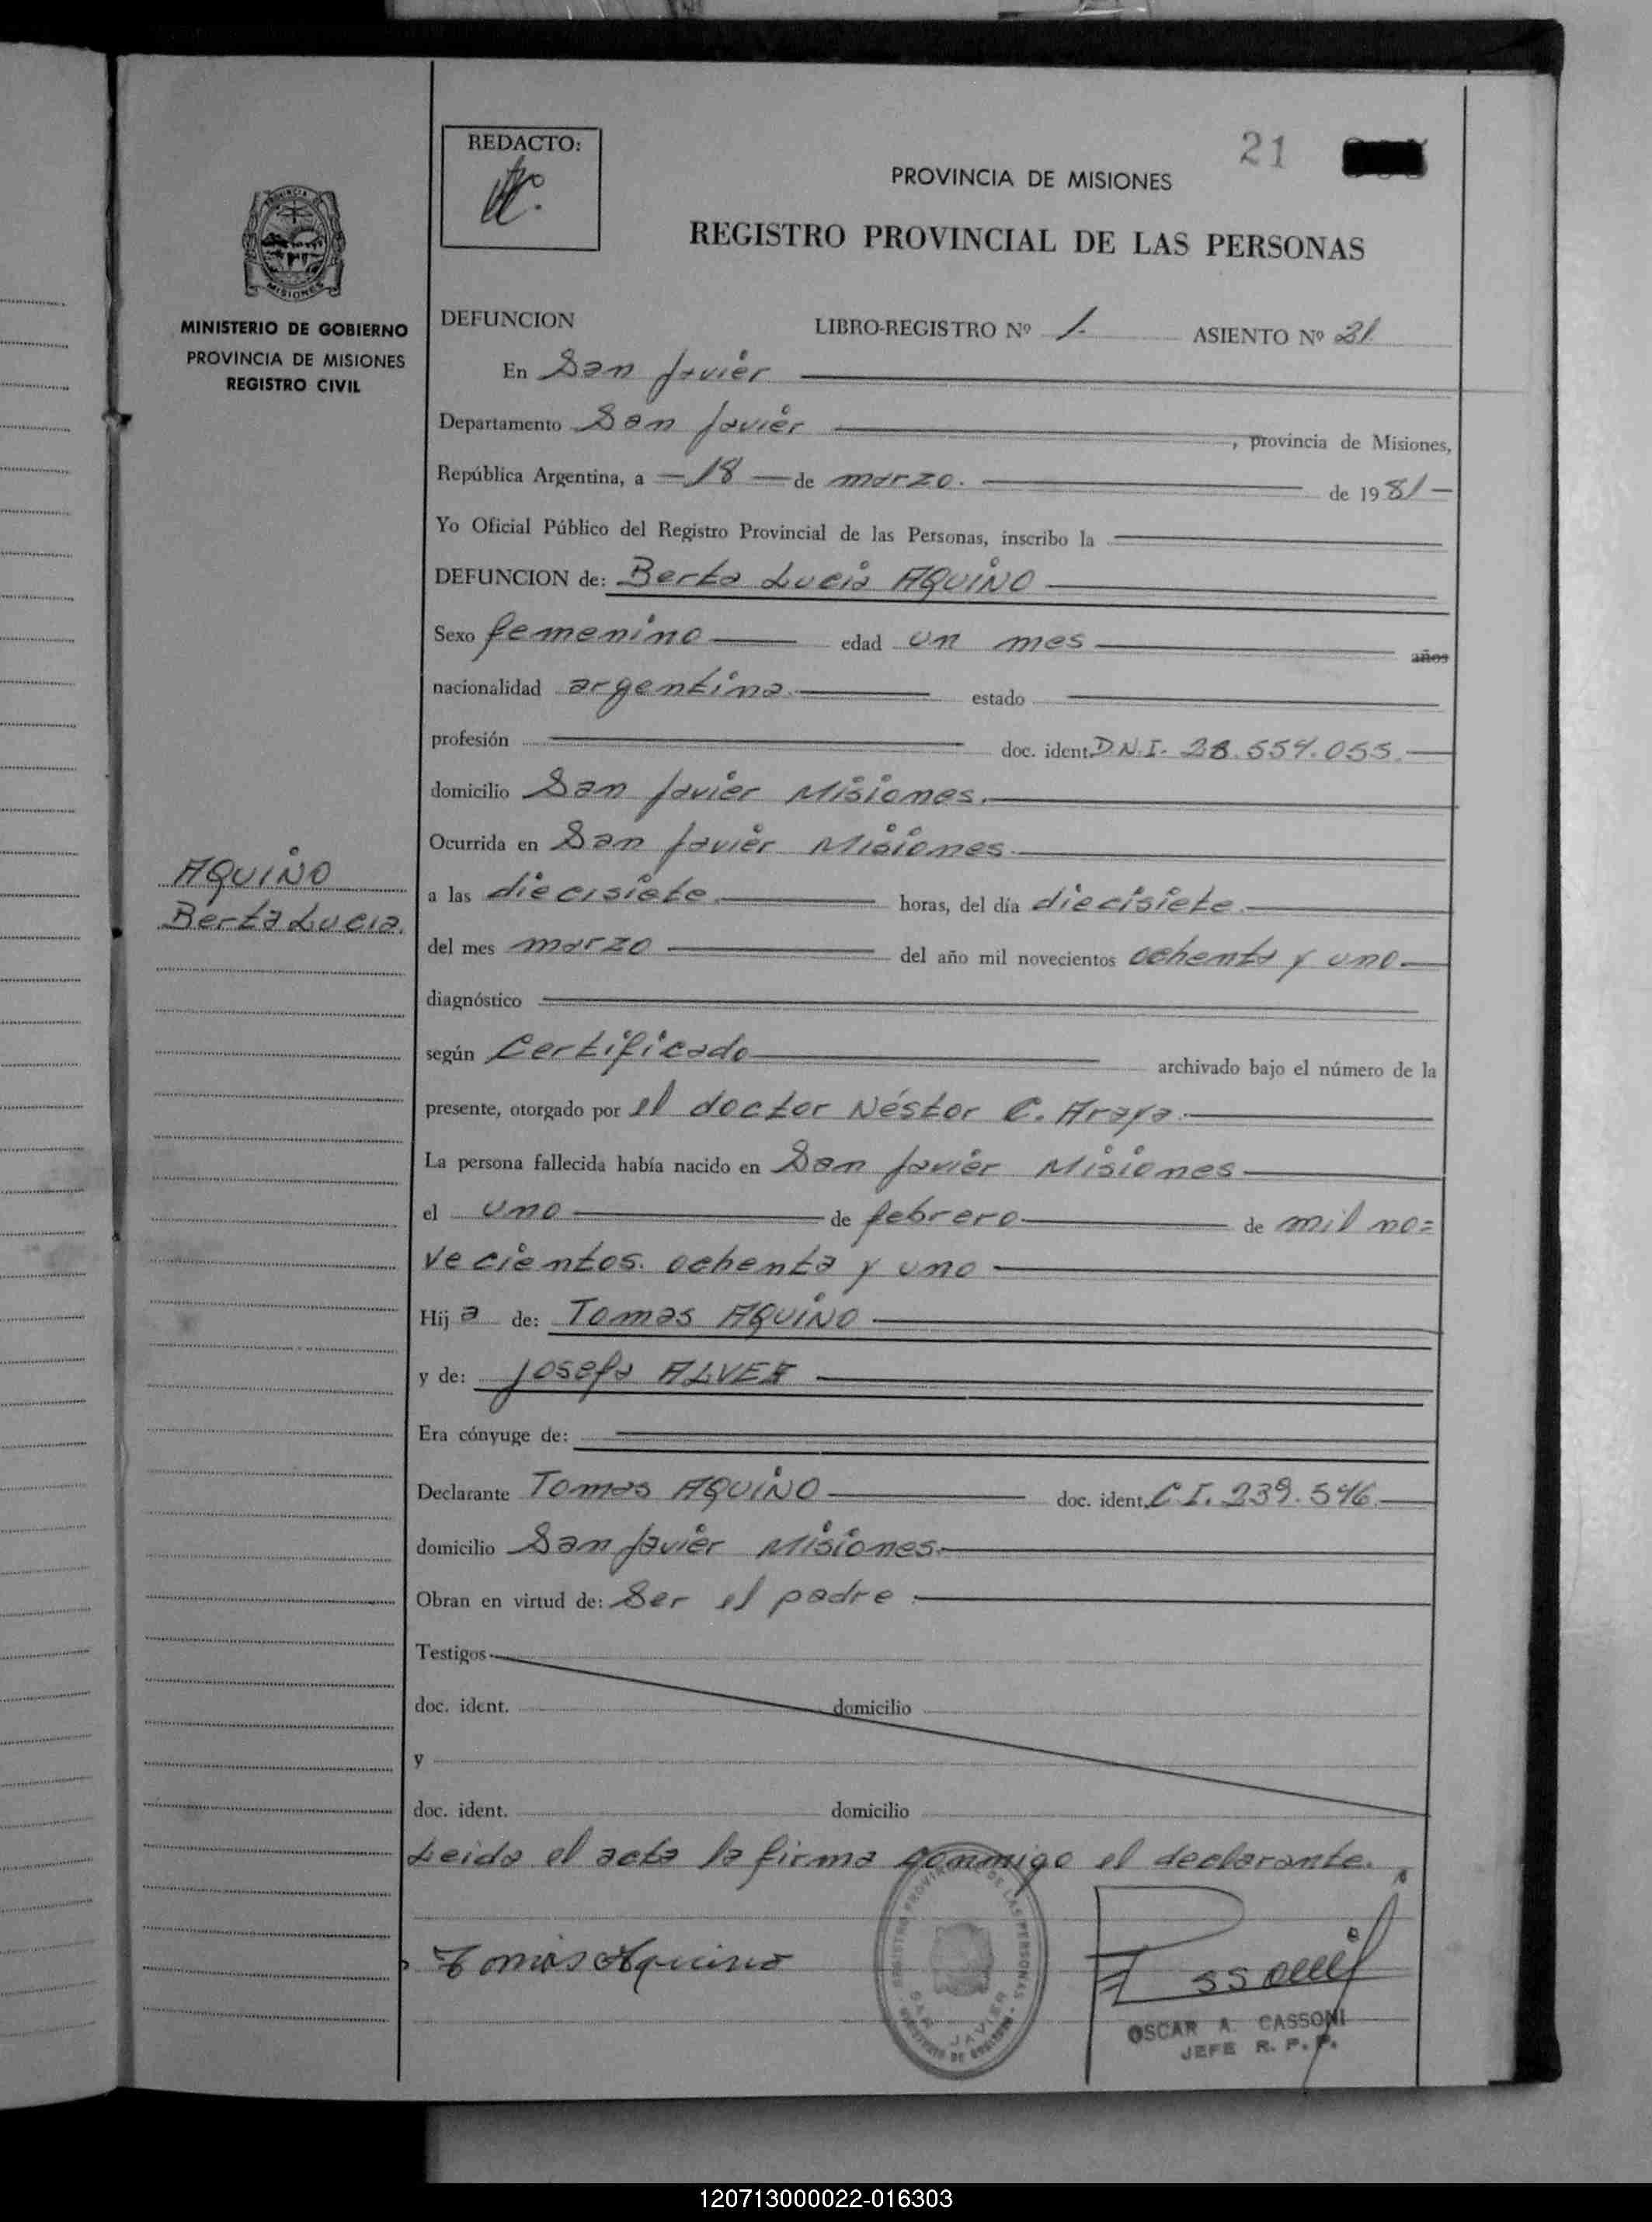 REDACTO:
21
PROVINCIA DE MISIONES
REGISTRO PROVINCIAL DE LAS PERSONAS
PROVINCIA
MISIONES
MINISTERIO DE GOBIERNO
PROVINCIA DE MISIONES
REGISTRO CIVIL
DEFUNCION LIBRO-REGISTRO Nº 1. ASIENTO Nº 21.
En San Javier
Departamento San Javier , provincia de Misiones,
República Argentina, a -18- de marzo. de 1981-
Yo Oficial Público del Registro Provincial de las Personas, inscribo la
DEFUNCION de: Berta Lucia AQUINO
Sexo femenino edad un mes años
nacionalidad argentina. estado
profesión doc. ident. D.N.I. 28.554.055.
domicilio San Javier Misiones.
Ocurrida en San Javier Misiones.
AQUINO
Berta Lucia.
a las diecisiete. horas, del día diecisiete.
del mes marzo del año mil novecientos ochenta y uno.
diagnóstico
según Certificado archivado bajo el número de la
presente, otorgado por el doctor Néstor C. Araya.
La persona fallecida había nacido en San Javier Misiones
el uno de febrero de mil no=
vecientos. ochenta y uno
Hij a de: Tomas AQUINO
y de: Josefa
Era cónyuge de:
Declarante Tomas AQUINO doc. ident. C.I. 239.546.
domicilio San Javier Misiones.
Obran en virtud de: Ser el padre.
Testigos
doc. ident. domicilio
y
doc. ident. domicilio
Leida el acta la firma conmigo el declarante.
Tomás Aquino
REGISTRO PROVINCIAL DE LAS PERSONAS
SAN JAVIER
OSCAR A. CASSONI
JEFE R. P. P.
120713000022-016303